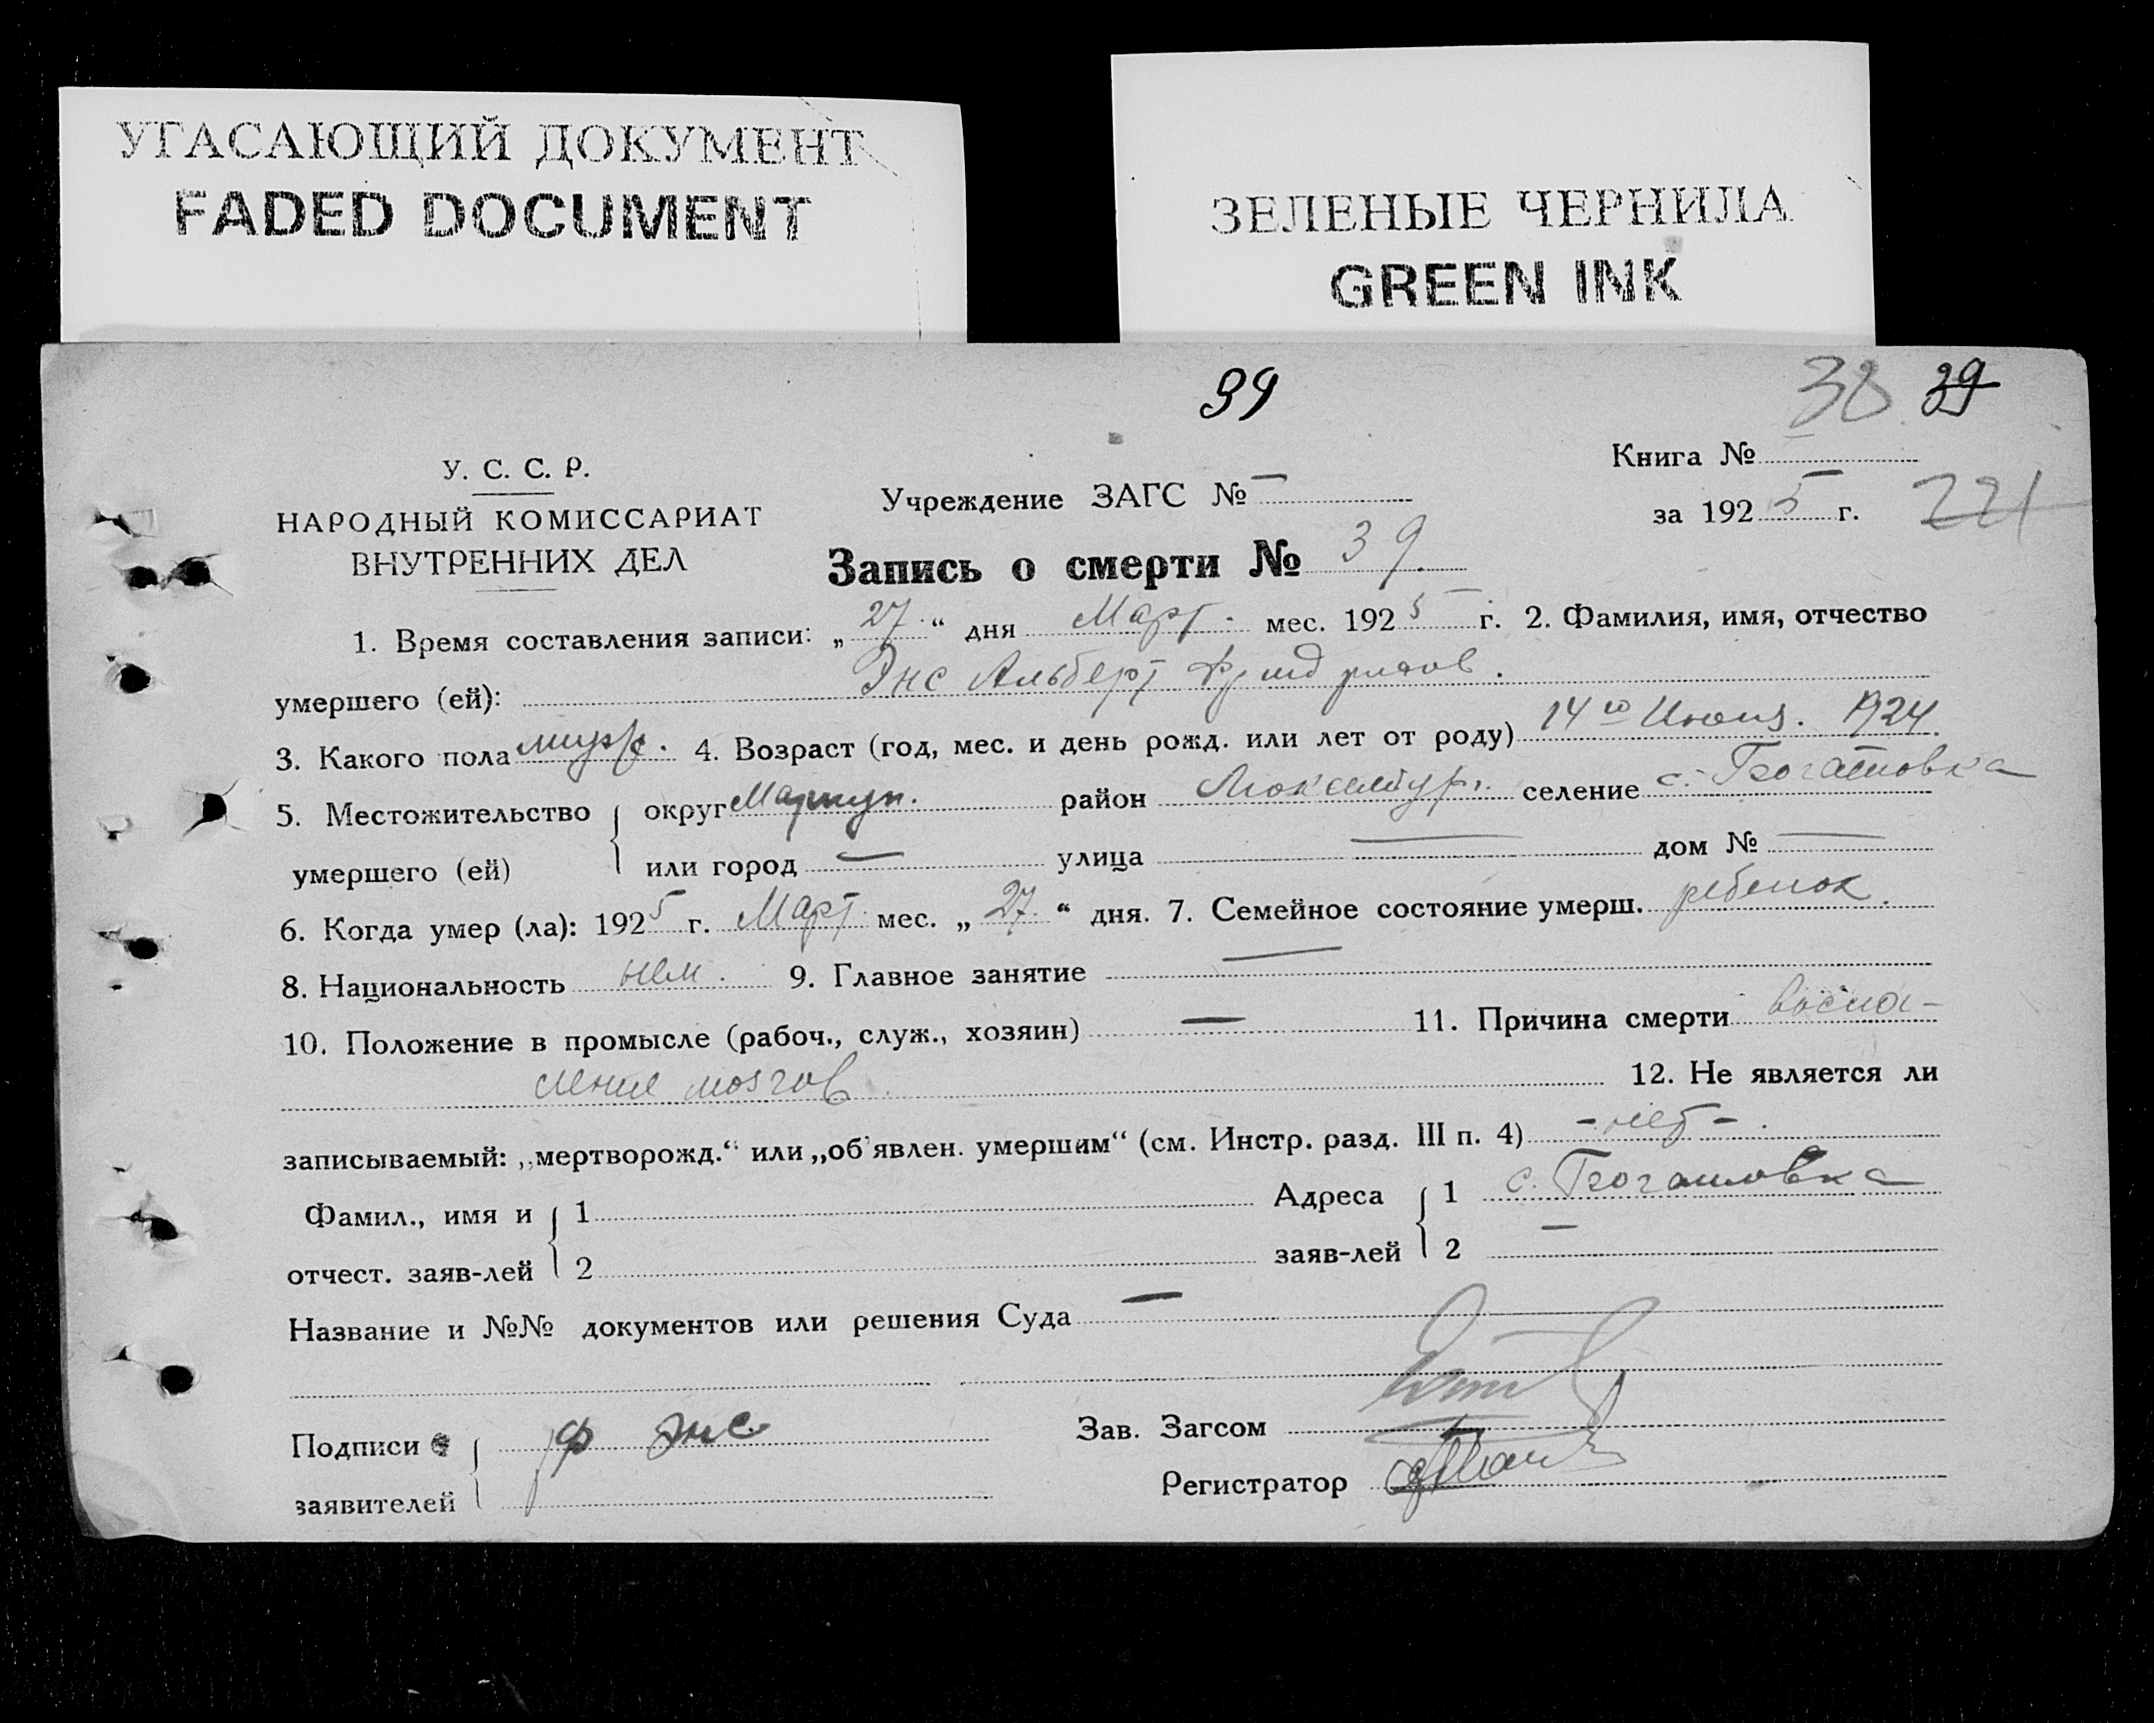 УГАСАЮЩИЙ ДОКУМЕНТ
FADED DOCUMENT
ЗЕЛЕНЫЕ ЧЕРНИЛА
GREEN INK
39 38 39
У. С. С. Р.
НАРОДНЫЙ КОМИССАРИАТ
ВНУТРЕННИХ ДЕЛ
Учреждение ЗАГС № —
Книга № —
за 192 5 г. 221
Запись о смерти № 39.
1. Время составления записи: „ 27. “ дня Март. мес. 192 5 г. 2. Фамилия, имя, отчество
умершего (ей): Энс Альберт
3. Какого пола 4. Возраст (год, мес. и день рожд. или лет от роду) 14го 1924.
5. Местожительство округ Мариуп. район Люксембур. селение с. Богатовка
умершего (ей) или город — улица — дом № —
6. Когда умер (ла): 192 5 г. Март. мес. „ 27. “ дня. 7. Семейное состояние умерш. ребенок.
8. Национальность нем. 9. Главное занятие —
10. Положение в промысле (рабоч., служ., хозяин) — 11. Причина смерти воспа-
ление мозгов.
12. Не является ли
записываемый: „мертворожд.“ или „об'явлен. умершим“ (см. Инстр. разд. III п. 4) -нет-.
Фамил., имя и 1 Адреса 1 с. Богатовка
отчест. заяв-лей 2 заяв-лей 2 —
Название и №№ документов или решения Суда —
Подписи Ф Энс Зав. Загсом
заявителей Регистратор